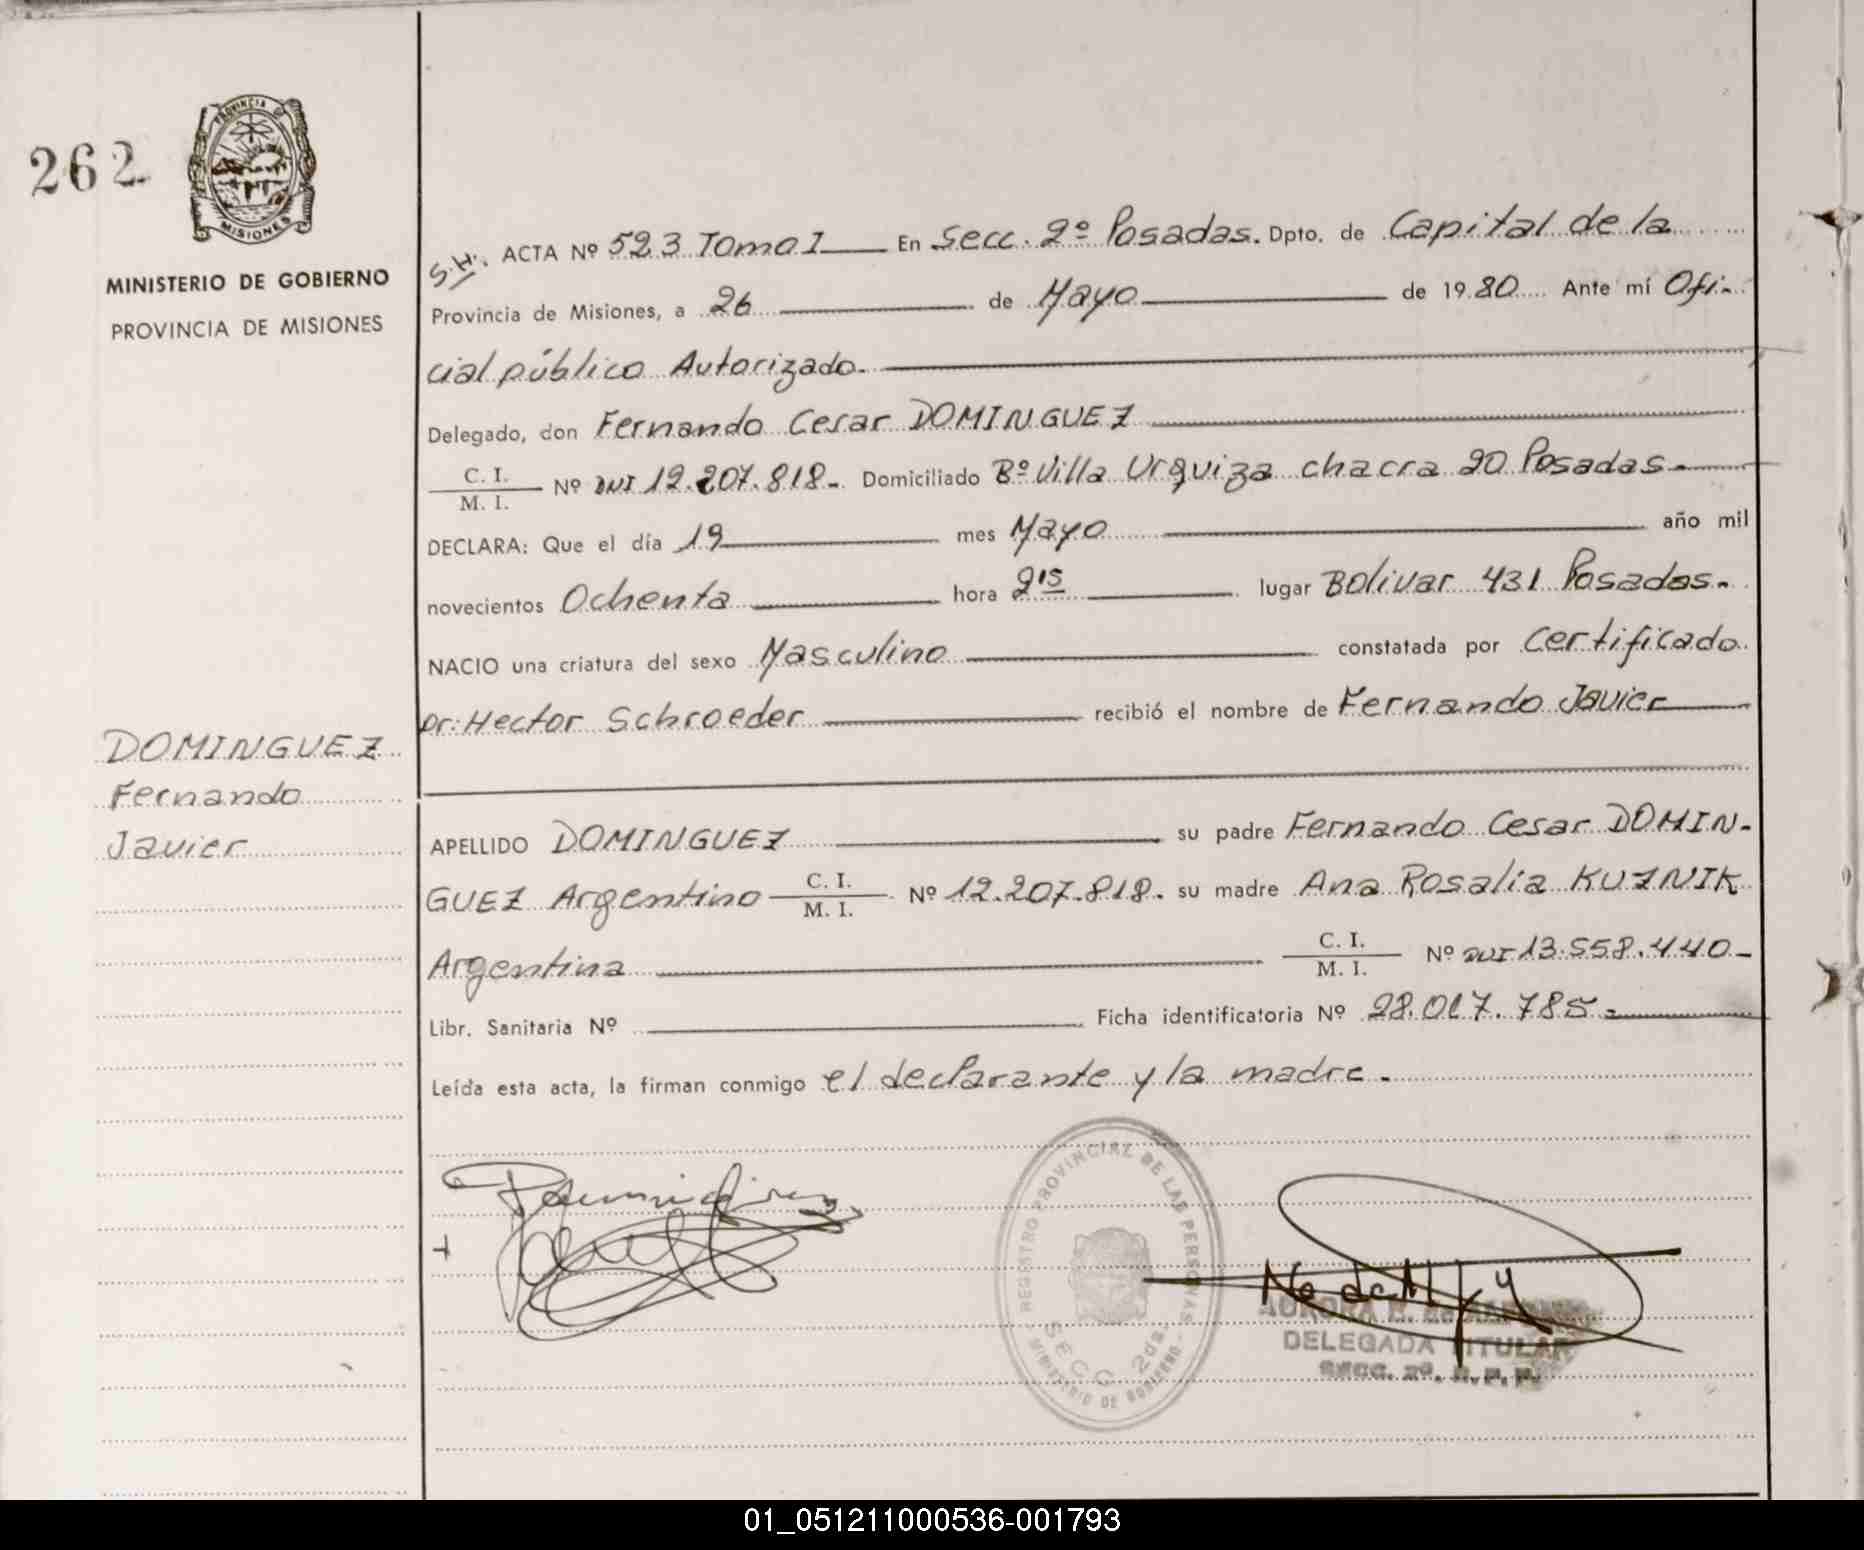 262
PROVINCIA DE
MISIONES
MINISTERIO DE GOBIERNO
PROVINCIA DE MISIONES
S.H. ACTA Nº 523 Tomo I En Secc. 2º Posadas. Dpto. de Capital de la
Provincia de Misiones, a 26 de Mayo de 1980 Ante mí Ofi-
cial público Autorizado.
Delegado, don Fernando Cesar DOMINGUEZ
C. I.
M. I. Nº DNI 12.207.818- Domiciliado Bº Villa Urquiza chacra 20 Posadas-
DECLARA: Que el día 19 mes Mayo año mil
novecientos Ochenta hora 2'15 lugar Bolivar 431 Posadas-
NACIO una criatura del sexo Masculino constatada por Certificado
Dr: Hector Schroeder recibió el nombre de Fernando Javier
DOMINGUEZ
Fernando
Javier
APELLIDO DOMINGUEZ su padre Fernando Cesar DOMIN-
GUEZ Argentino C. I.
M. I. Nº 12.207.818. su madre Ana Rosalia KUZNIK
Argentina C. I.
M. I. Nº DNI 13.558.440-
Libr. Sanitaria Nº Ficha identificatoria Nº 28.017.785-
Leída esta acta, la firman conmigo el declarante y la madre-
REGISTRO PROVINCIAL DE LAS PERSONAS
SECC 2da.
MINISTERIO DE GOBIERNO
AURORA
DELEGADA TITULAR
SECC. 2ª. R. P. P.
01_051211000536-001793